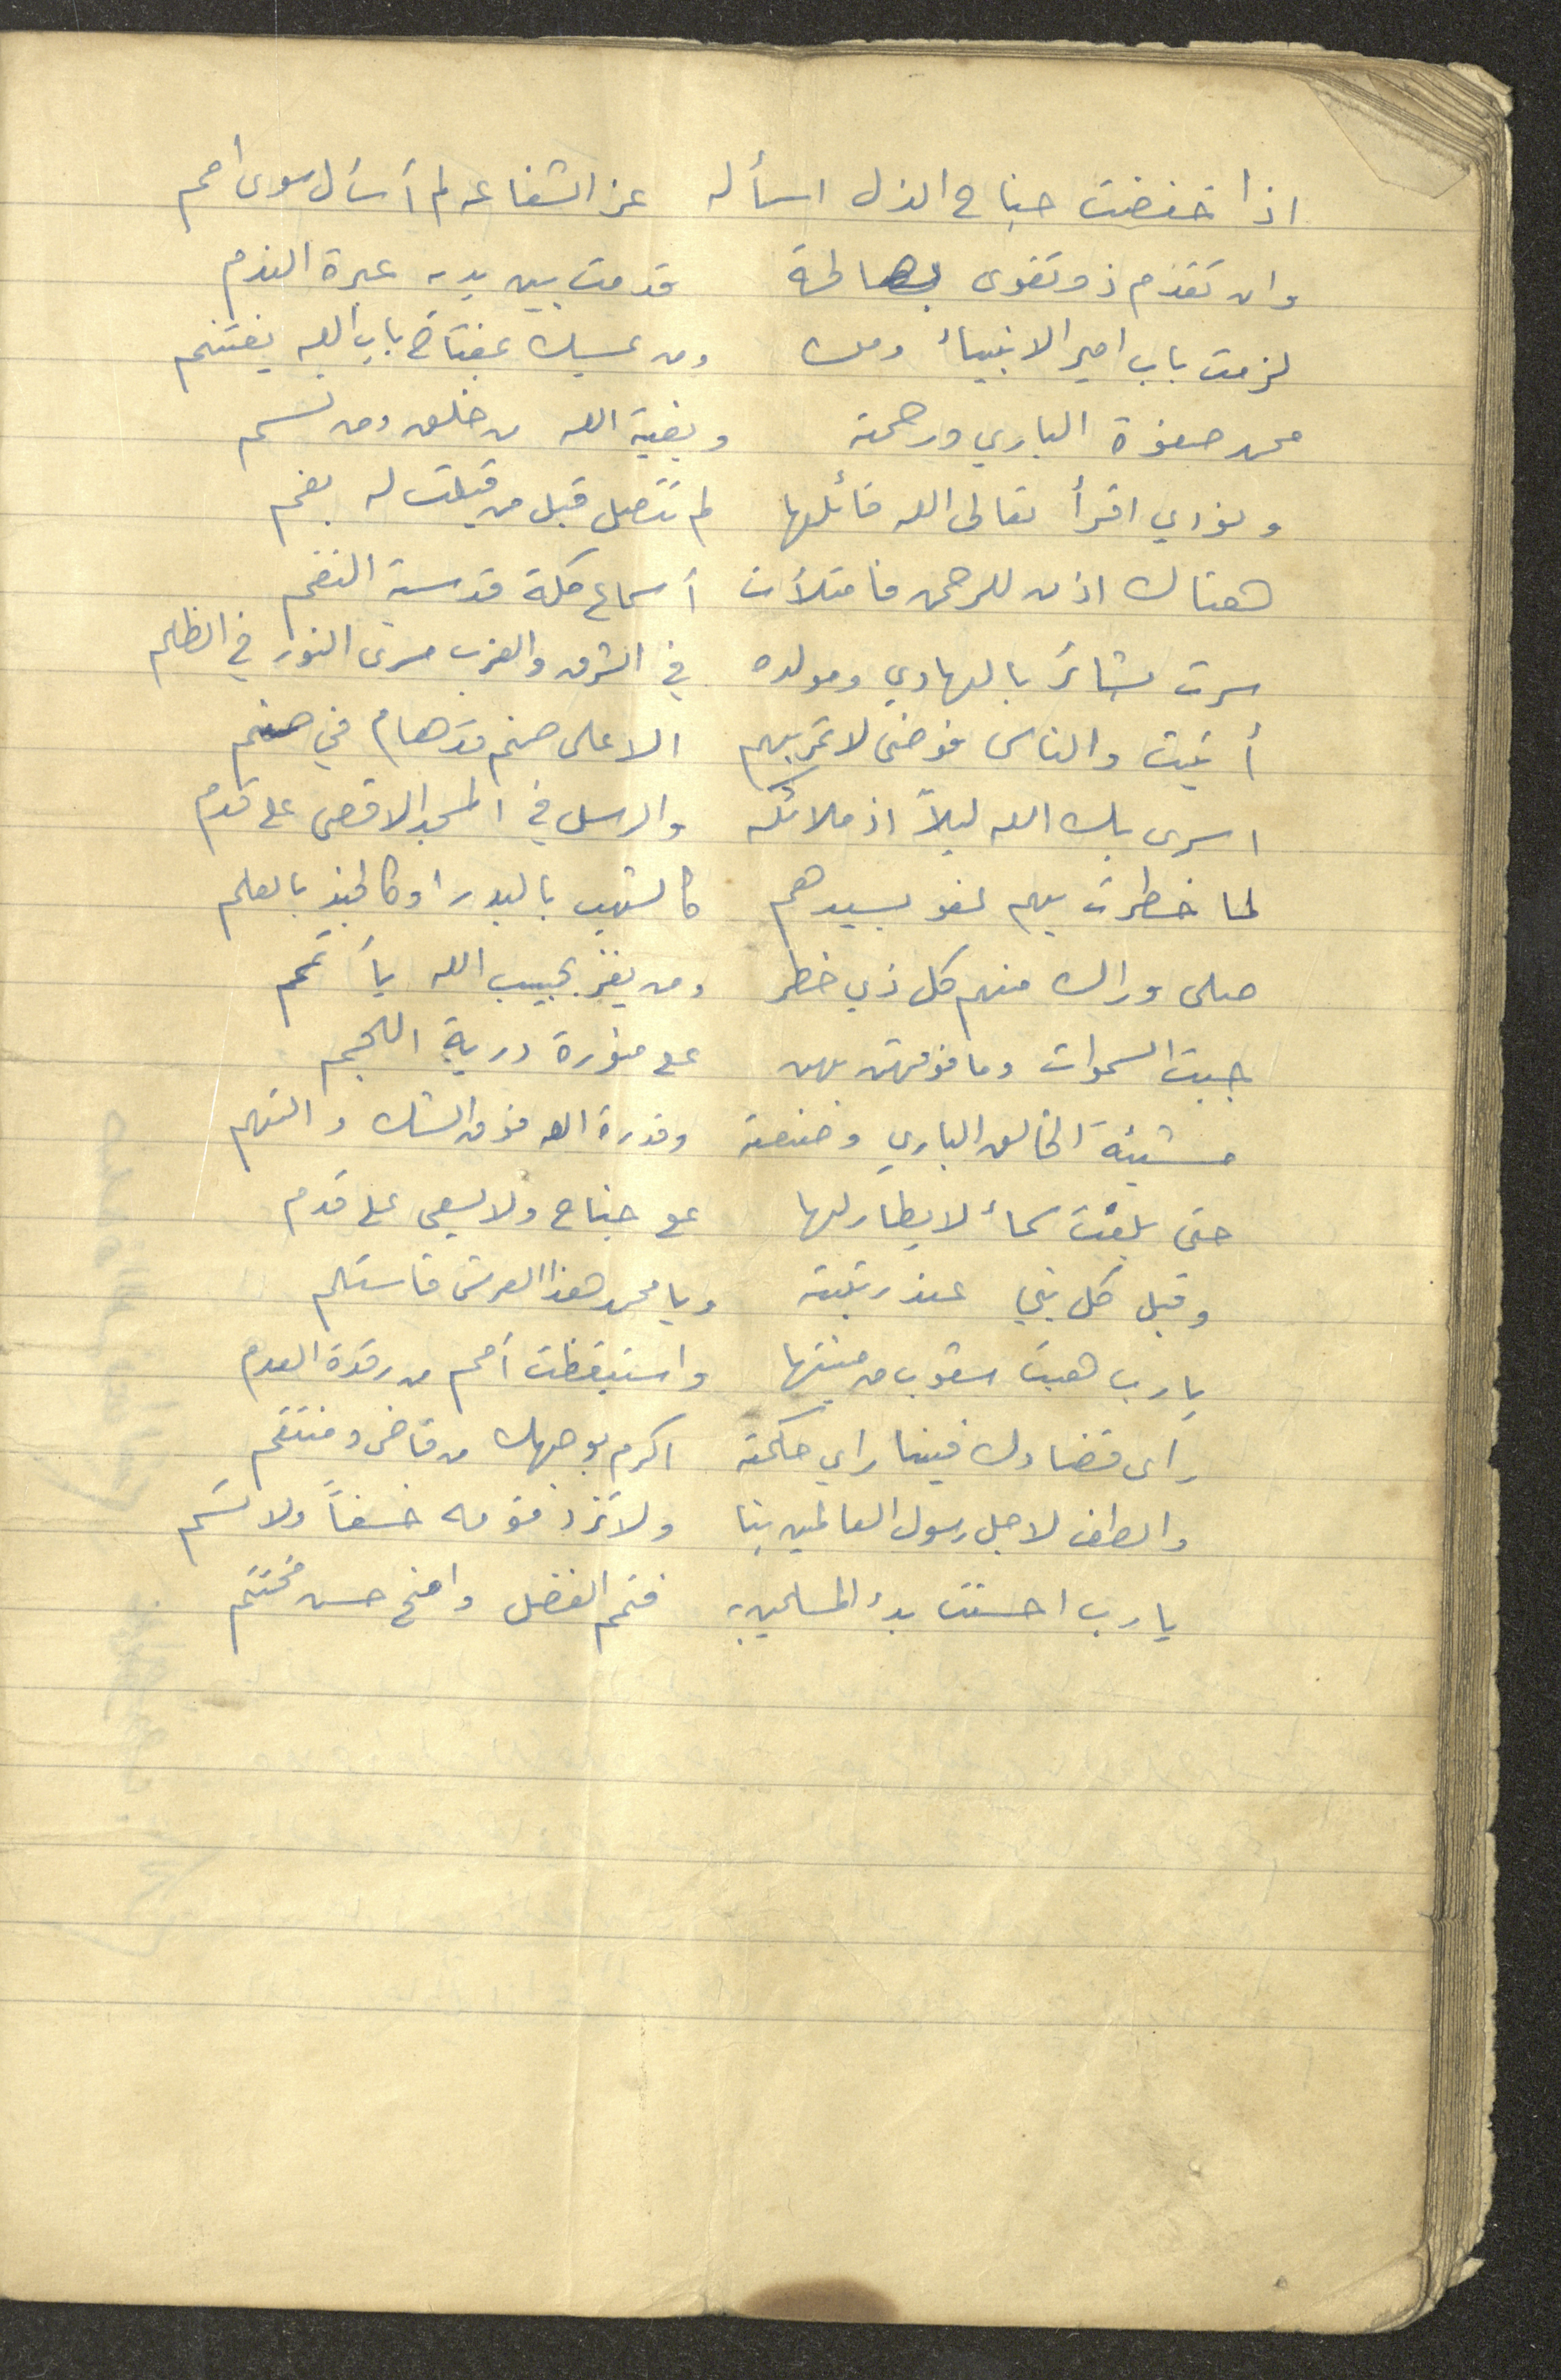 اذا خفضت جناح الذل اسأله عز الشفاعه لم أسأل سوى امم
وان تقدم ذو تقوى بصالحة قدمت بين يديه عبرة الندم
لزمت باب امير الانبياء ومن ومن يمسك بمفتاح باب الله يغتنم
محمد صفوة الباري ورحمته وبغية الله من خلق ومن نسم
ونودي اقرأ تعالى الله قائلها لم تتصل قبل من قيلت له بفم
هناك اذن للرحمن فامتلأت أسماع مكة قدسية النغم
سرت بشائر بالهادي ومولده في الشرق والغرب مسرى النور في الظلم
أتيت والناس فوضى لا تمر بهم الا على صنم قد هام في صنم
اسرى بك الله ليلاً اذ ملائكه والرسل في المسجد الاقصى على قدم
لما خطرت بهم لفو بسيدهم كالشهب بالبدر اوكالجند بالعلم
صلى وراك منهم كل ذي خطر ومن يفز بحبيب الله يأتمم
جبت السموات وما فوقهن بهن على منورة درية اللجم
مشيئة الخالق الباري وصنعته وقدرة الله فوق الشك والتهم
حتى بلغت سماء لا يطار لها على جناح ولا يسعى على قدم
وقيل كل نبي عند رتبته ويا محمد هذا العرش فاستلم
يارب هبت شعوب من منيتها واستيقظت أمم من رقدة العدم
راى قضاوك فينا راي حكمته اكرم بوجهك من قاضى ومنتقم
والطف لاجل رسول العالمين بنا ولا تزد قومه خسفاً ولا تسم
يا رب احسنت بدء المسلمين به فتمم الفضل وامنح حسن مختتم